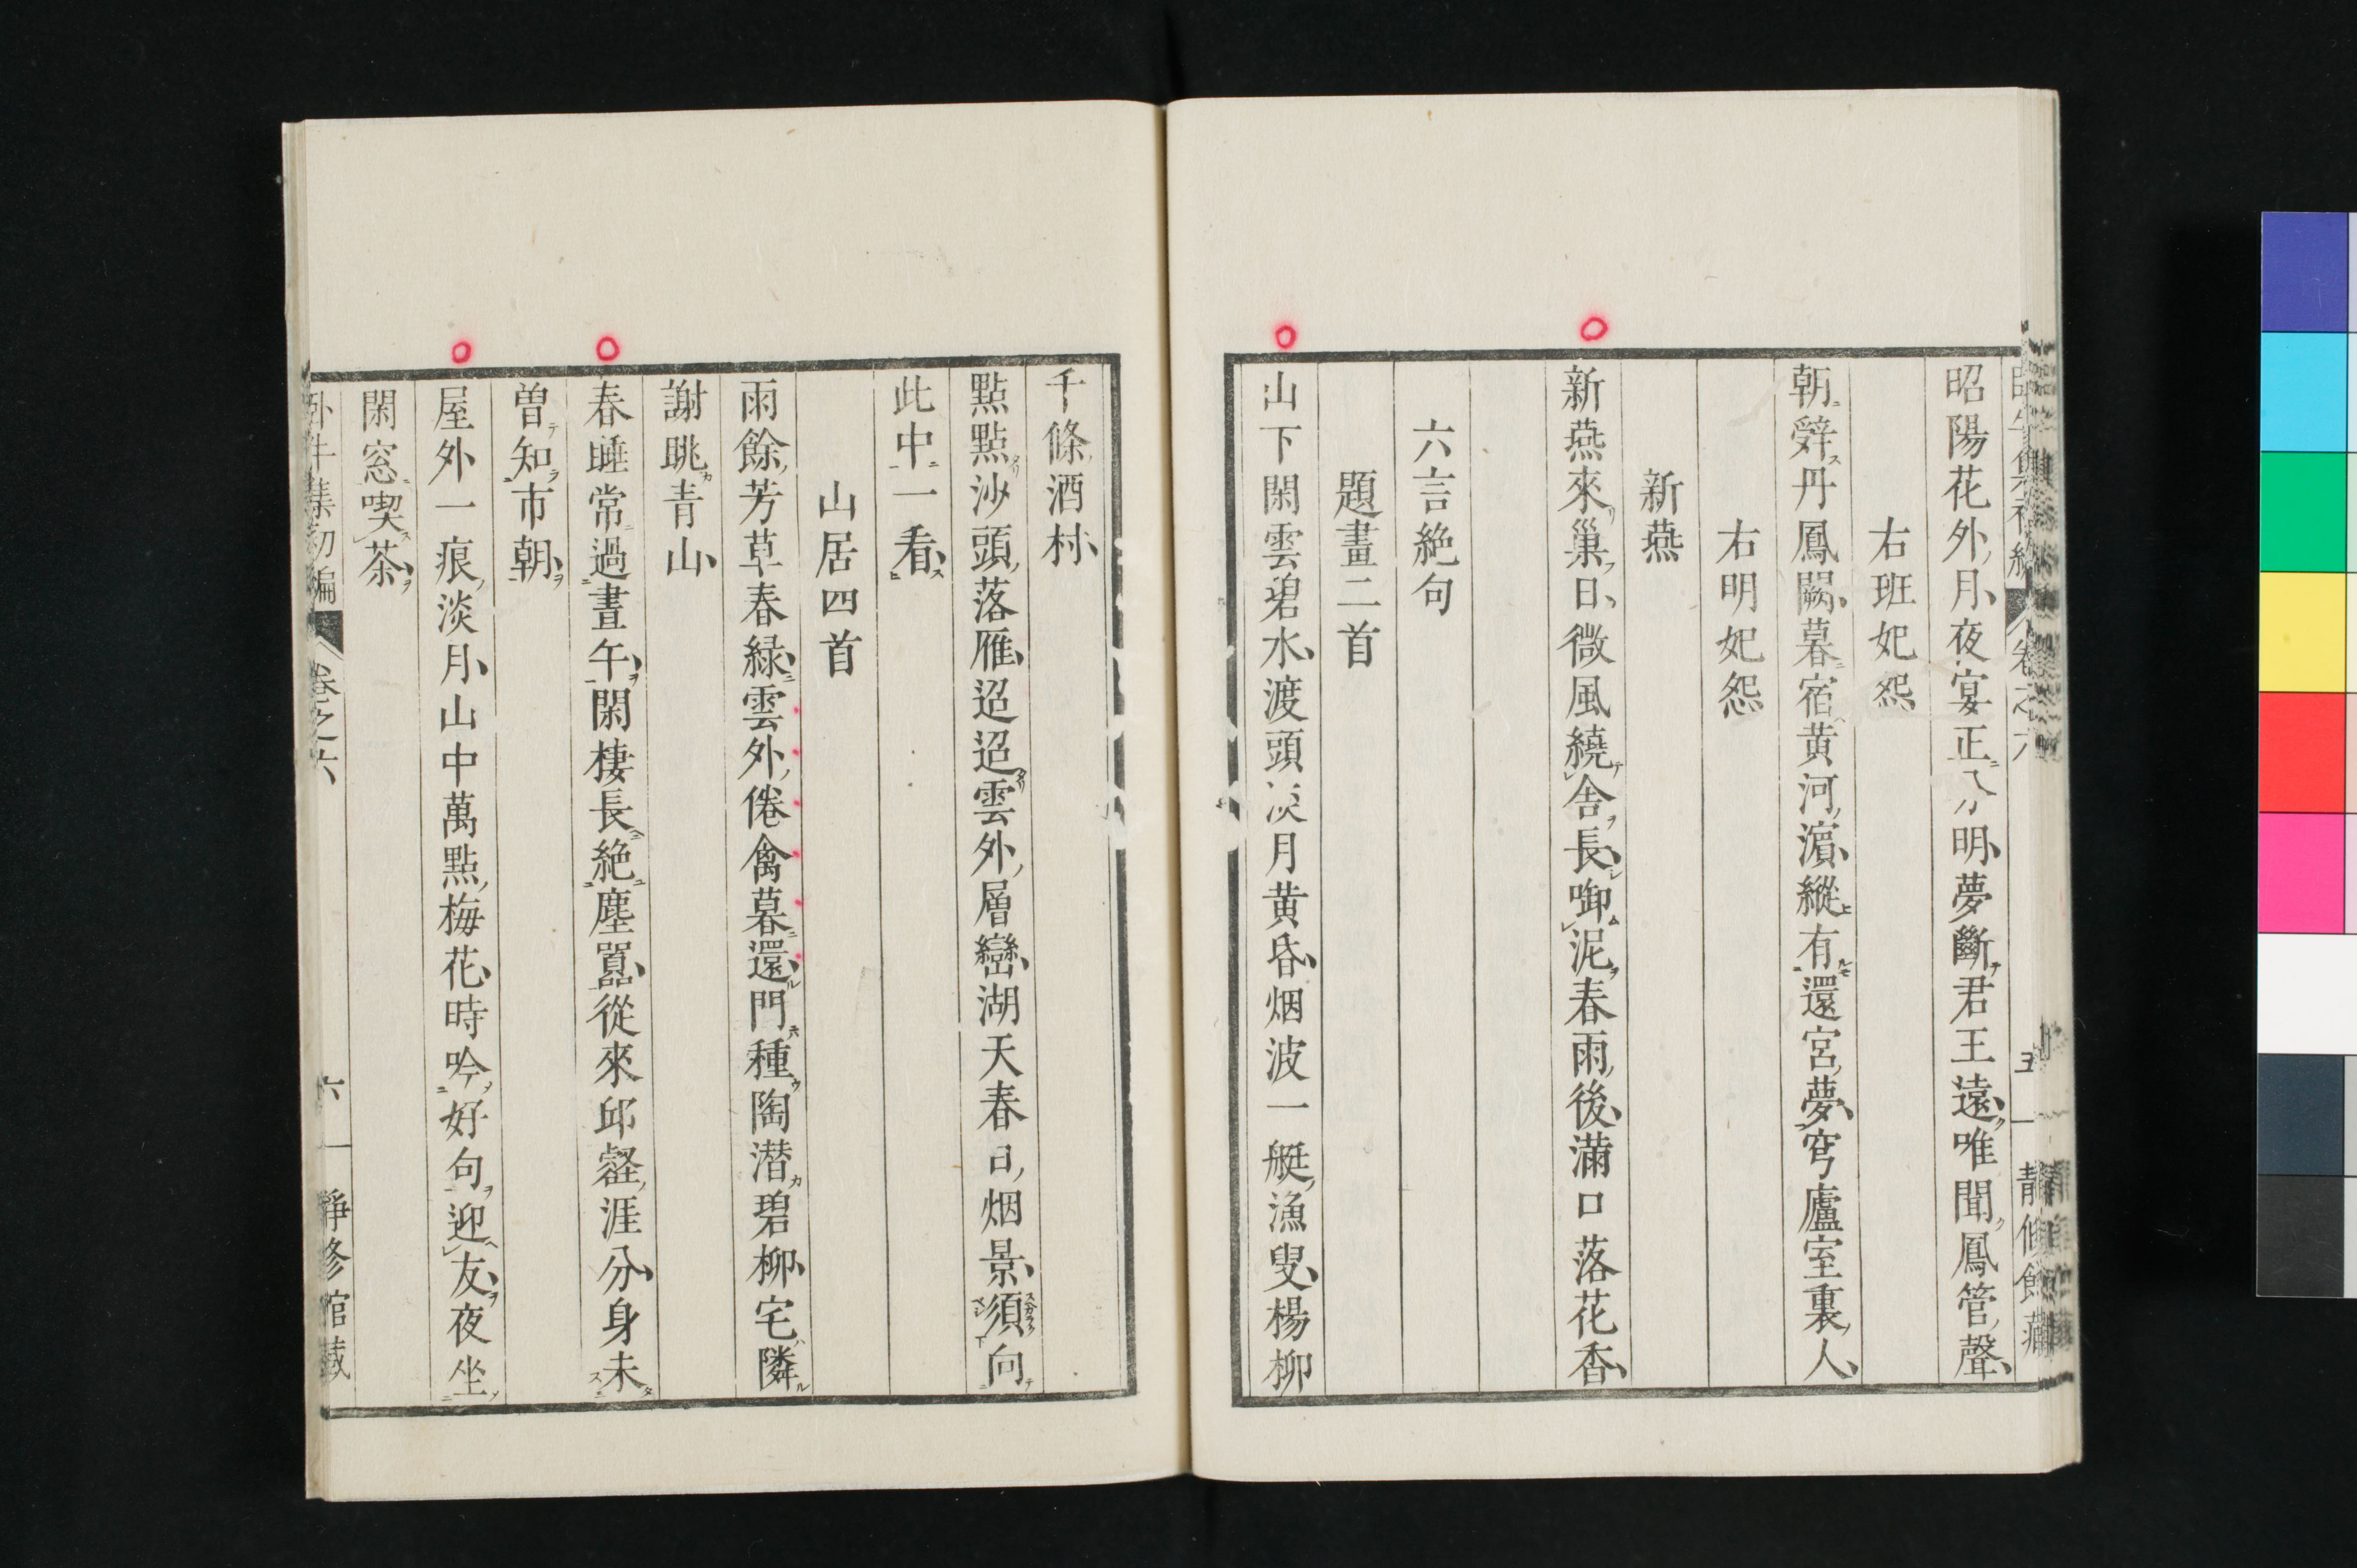 昭陽花外月夜宴正分明夢斷君王遠唯聞鳳管聲
右班妃怨
朝辤丹鳳闕暮宿黄河濵縱有還宮夢穹廬室裏人
右明妃怨
新燕
新燕來巢日微風繞舎長啣泥春雨後滿口落花香
六言絶句
題畫二首
山下閑雲碧水渡頭淡月黄昏烟波一艇漁叟楊柳
千條酒村
點點沙頭落雁迢迢雲外層巒湖天春日烟景須向
此中一看
山居四首
雨餘芳草春緑雲外倦禽暮還門種陶潜碧柳宅隣
謝眺青山
春睡常過晝午閑棲長絶塵囂從來邱壑涯分身未
曽知市朝
屋外一痕淡月山中萬點梅花時吟好句迎友夜坐
閑窓喫茶
卧牛集初編 卷之六 六 静修館藏